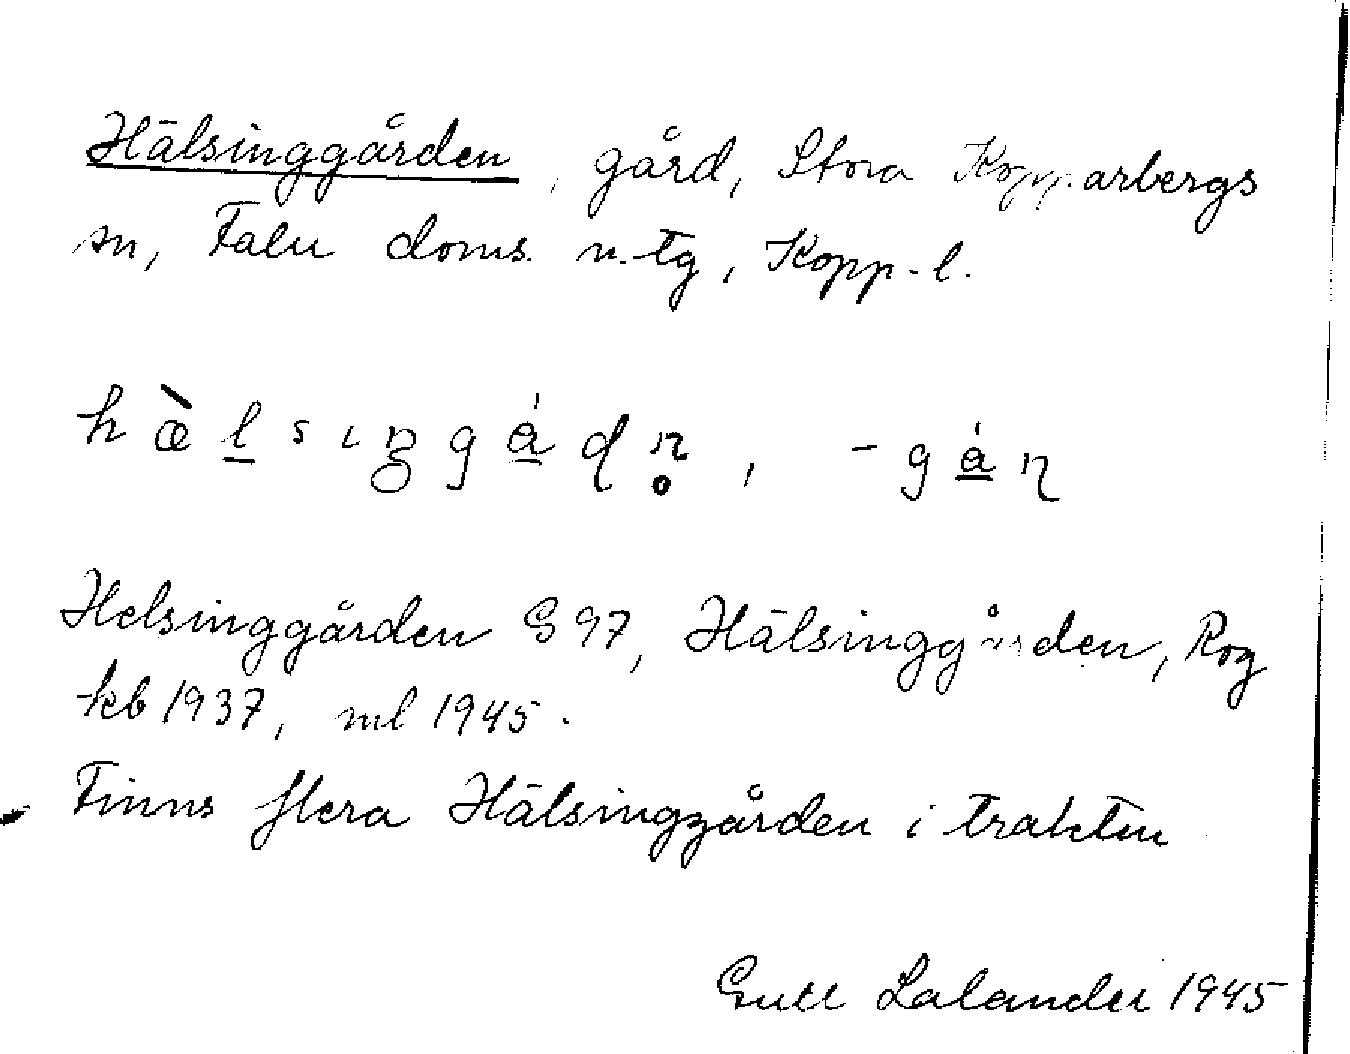 Hälsinggården, gård, Stora Kopparbergs
sn, Falu doms. n. tg, Kopp. l.
hæ̀l̠sɩŋgá̠ɖṇ̥, -gá̠ɳ
Helsinggården G 97, Hälsinggården, Rog
kb 1937, ml 1945.
Finns flera Hälsinggården i trakten
Lalander 1945